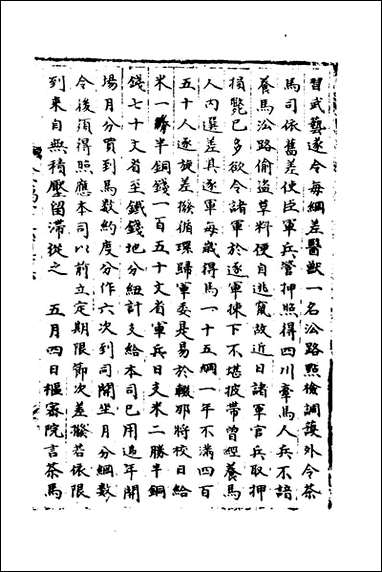 習武藝遂令每綱差醫獸一名沿路㸃檢調護外令茶
馬司依舊差使臣軍兵管押照得四川牽馬人兵不諳
養馬沿路偷盜草料便自逃竄故近日諸軍官兵取押
損斃已多欲令諸軍於逐軍揀下不堪披帶曾經養馬
人內選差具逐軍每歲得馬一十五綱一年不滿四百
五十人逐旋差撥循環歸軍委是易於輟那將校日給
米一勝半銅錢一百五十文省軍兵日支米二勝半銅
錢七十文省至鐵錢地分紐計支給本司已用追年開
場月分買到馬數約度分作六次到司開坐月分綱數
令後須得照應本司以前立定期限節次差撥若依限
到來自無積壓留滯從之　五月四日樞密院言茶馬